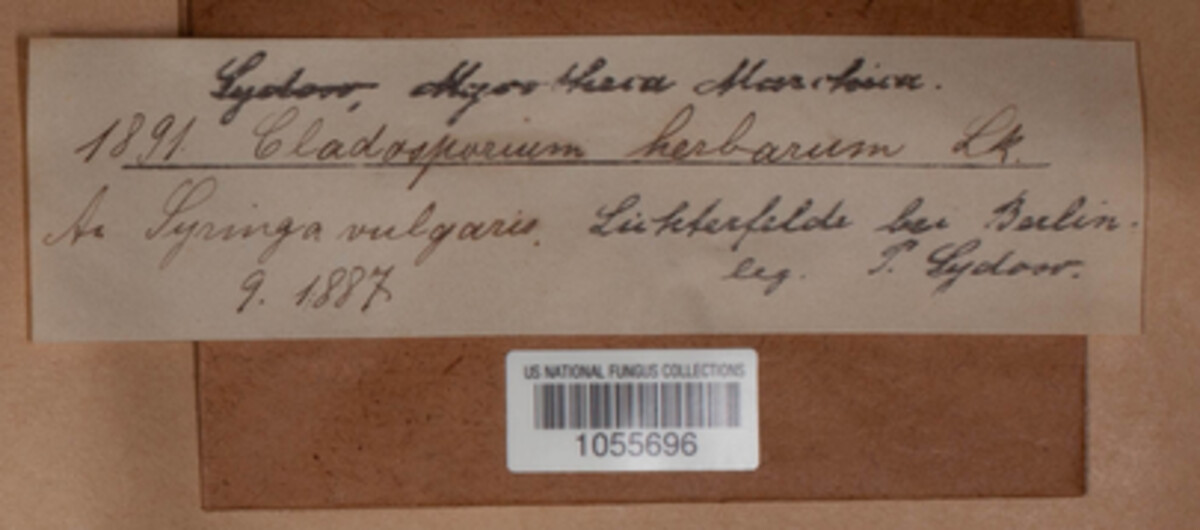 Sydow, Mycotheca Marchica.
1891. Cladosporium herbarum Lk.
An Syringa vulgaris. Lichterfelde bei Berlin.
9. 1887 leg. P. Sydow.
US NATIONAL FUNGUS COLLECTIONS
1055696